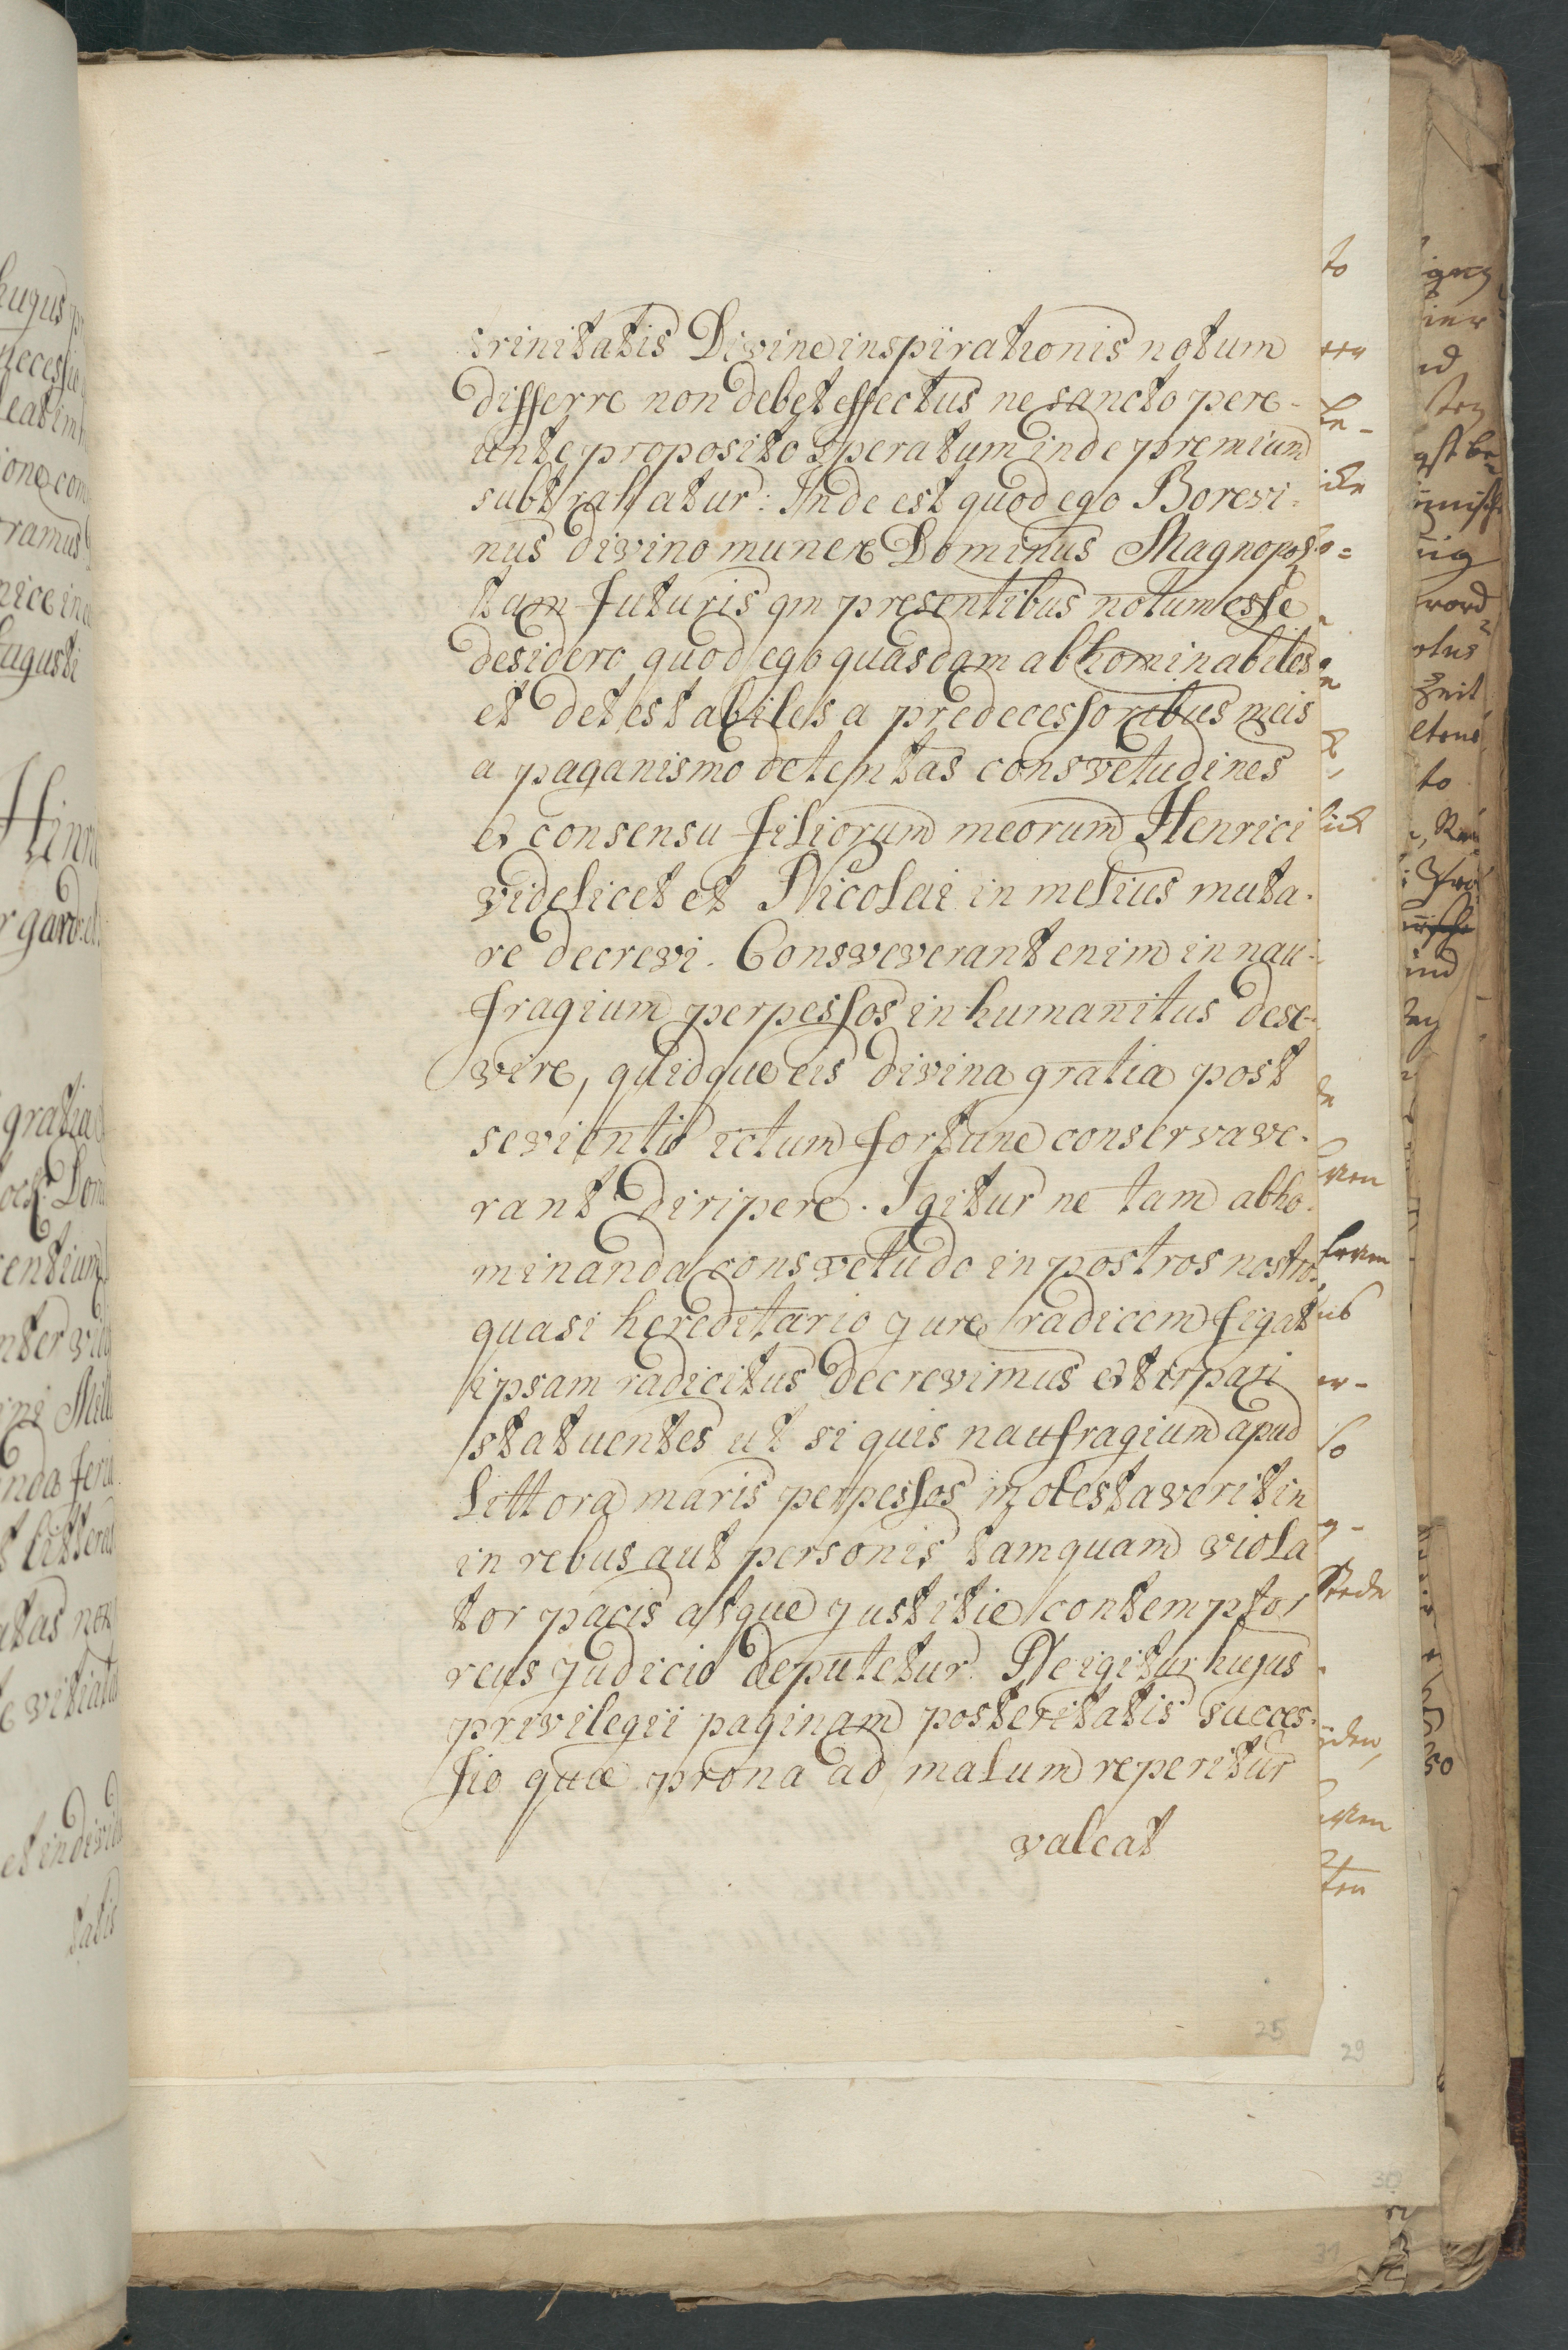 trinitatis Divine inspirationis notum
differre non debet effectus ne sancto pere-
unte proposito speratum inde premium
subtrahatur: Inde est quod ego Borevi-
nus divino munere Dominus Magnopol
tam futuris qm presentibus notum esse
desidero quod ego quasdam abhominabiles
et detestabiles a predecessoribus meis
a paganismo detentas consvetudines
ex consensu filiorum meorum Henrici
videlicet et Nicolai in melius muta-
re decrevi. Consveverant enim in nau-
fragium perpessos inhumanitus dese-
vire, quidque eis divina gratia post
sevientis ictum fortune conservave-
rant diripere. Igitur ne tam abho-
minanda consvetudo in postros nostros
quasi hereditario jure radicem figat
ipsam radicitus decrevimus extirpari
statuentes ut si quis naufragium apud
littora maris perpessos molestaverit in
in rebus aut personis tamquam viola
tor pacis atque justitie contemptor
reus judicio deputetur. Ne igitur hujus
privilegii paginam posteritatis succes-
sio quæ prona ad malum reperitur
valeat
25
29
30
31